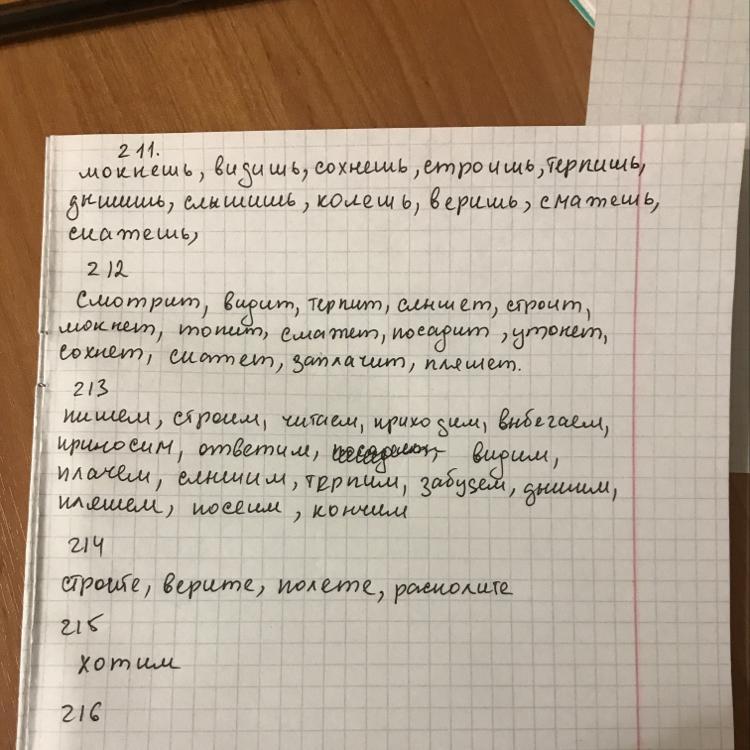 211.
мокнешь, видишь, сохнешь, строишь, терпишь,
дышишь, слышишь, колешь, веришь, сматешь,
сматешь,
212
Смотрит, видит, терпит, слышет, строит,
мокнет, топит, смажет, посадит, утонет,
сохнет, сматет, заплачит, пляшет.
213
пишем, строим, читаем, приходим, выбегаем,
приносим, ответим, видим,
плачем, слышим, терпим, забудем, дышим,
пляшем, посеим, кончим
214
строите, верите, полете, расколите
215
хотим
216